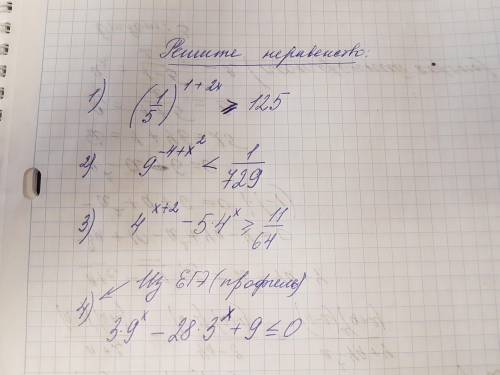 Решите неравенство:
1) (1/5)^(1+2x) ≥ 125
2) 9^(-4+x^2) < 1/729
3) 4^(x+2) - 5·4^x ≥ 11/64
4) Из ЕГЭ (профиль)
3·9^x - 28·3^x + 9 ≤ 0